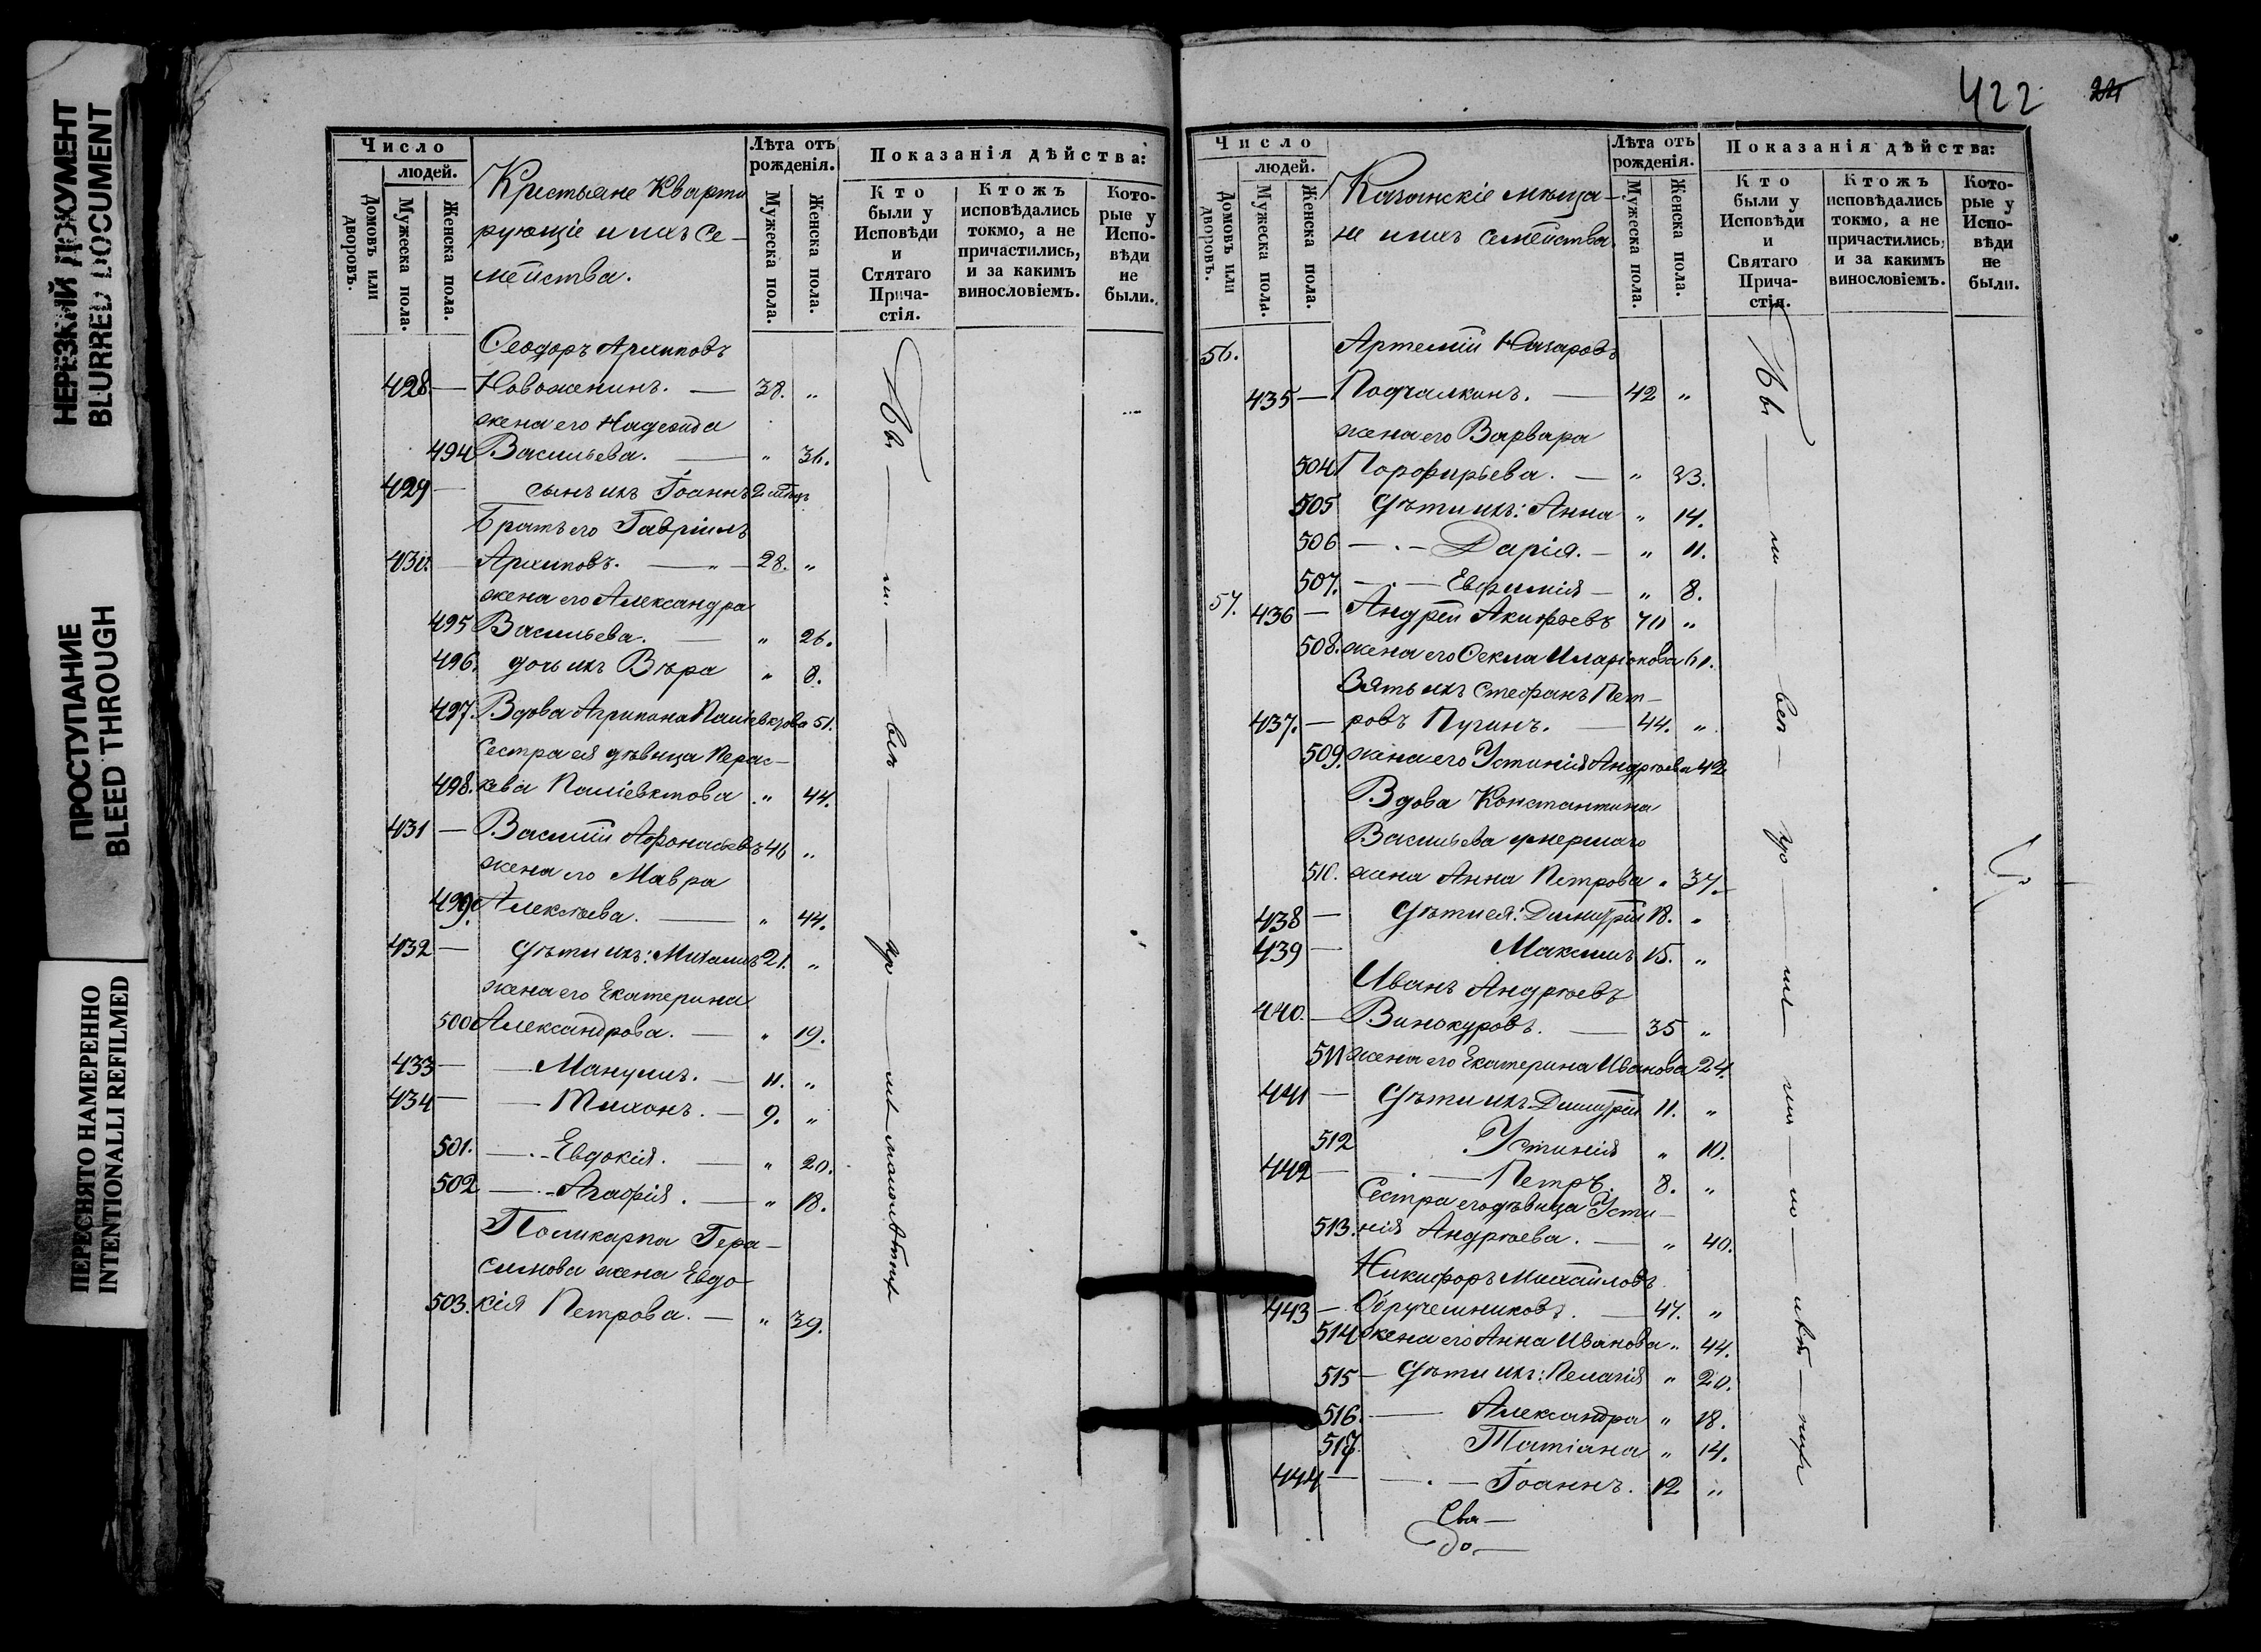 НЕРЕЗКИЙ ДОКУМЕНТ
BLURRED DOCUMENT
ПРОСТУПАНИЕ
BLEED THROUGH
ПЕРЕСНЯТО НАМЕРЕННО
INTENTIONALLI REFILMED
Число
людей.
Домовъ или дворовъ.
Мужеска пола.
Женска пола.
Крестьяне Кварти
рующіе и ихъ Се-
мейства.
Лѣта отъ рожденія.
Мужеска пола.
Женска пола.
Показанія дѣйства:
Кто были у Исповѣди и Стятаго Прича-стія.
Ктожъ исповѣдались токмо, а не причастились, и за какимъ винословіемъ.
Кото-рые у Испо-вѣди не были.
Ѳеодоръ Архиповъ
428. — Новоженинъ. — 38. „
жена его Надежда
494 Васильева. — „ 36.
429 — сынъ ихъ Іоаннъ 2 мѣсц
Братъ его Гавріилъ
430. — Архиповъ. — „ — 28. „
жена его Александра
495 Васильева. — „ 26.
496. дочь ихъ Вѣра „ 8.
497. Вдова Агрипина Паліевктова 51.
Сестра ея дѣвица Парас-
498. кева Паліевктова „ 44.
431 — Василій Афонасьевъ 46 „
жена его Мавра
499. Алексѣева. — „ 44.
432 — Дѣти ихъ: Михаилъ 21. „
жена его Екатерина
500 Александрова. — „ 19.
433 — — Мануилъ. — 11. „
434 — — Тихонъ. — 9. „
501. — . — Евдокія. — „ 20.
502 — . — Агафія. — „ 18.
Поликарпа Гера-
симова жена Евдо-
503. кія Петрова. — „ 39.
422
Число
людей.
Домовъ или дворовъ.
Мужеска пола.
Женска пола.
Казанскіе мѣща-
не и ихъ семейства.
Лѣта отъ рожденія.
Мужеска пола.
Женска пола.
Показанія дѣйства:
Кто были у Исповѣди и Святаго Прича-стія.
Ктожъ исповѣдались токмо, а не причастились, и за какимъ винословіемъ.
Кото-рые у Испо-вѣди не были.
56. Артемій Назаровъ
435 — Подчалкинъ. — 42 „
жена его Варвара
504 Порфирьева. — „ 33.
505 Дѣти ихъ: Анна „ 14.
506 — . — Дарія. — „ 11.
507. — . — Евфимія — „ 8.
57. 436 — Андрей Акифьевъ 70 „
508. жена его Ѳекла Иларіонова 61.
Зять ихъ Стефанъ Пет-
437. — ровъ Пугинъ. — 44. „
509. жена его Устинія Андрѣева 42
Вдова Константина
Васильева умершаго
510. жена Анна Петрова „ 37.
438 — Дѣти ея: Димитрій 18. „
439 — Максимъ 15. „
Иванъ Андрѣевъ
440. — Винокуровъ. — 35 „
511 жена его Екатерина Иванова 24.
441 — Дѣти ихъ Димитрій 11. „
512 Устинія „ 10.
442 — . — Петръ. 8. „
Сестра его дѣвица Усти-
513. нія Андрѣева. — „ 40.
Никифоръ Михайловъ
443 — Обручениковъ. — 47. „
514 жена его Анна Иванова „ 44.
515 — Дѣти ихъ: Пелагія „ 20.
516. — Александра „ 18.
517. Татіана „ 14.
444 — — . — Іоаннъ. 12 „